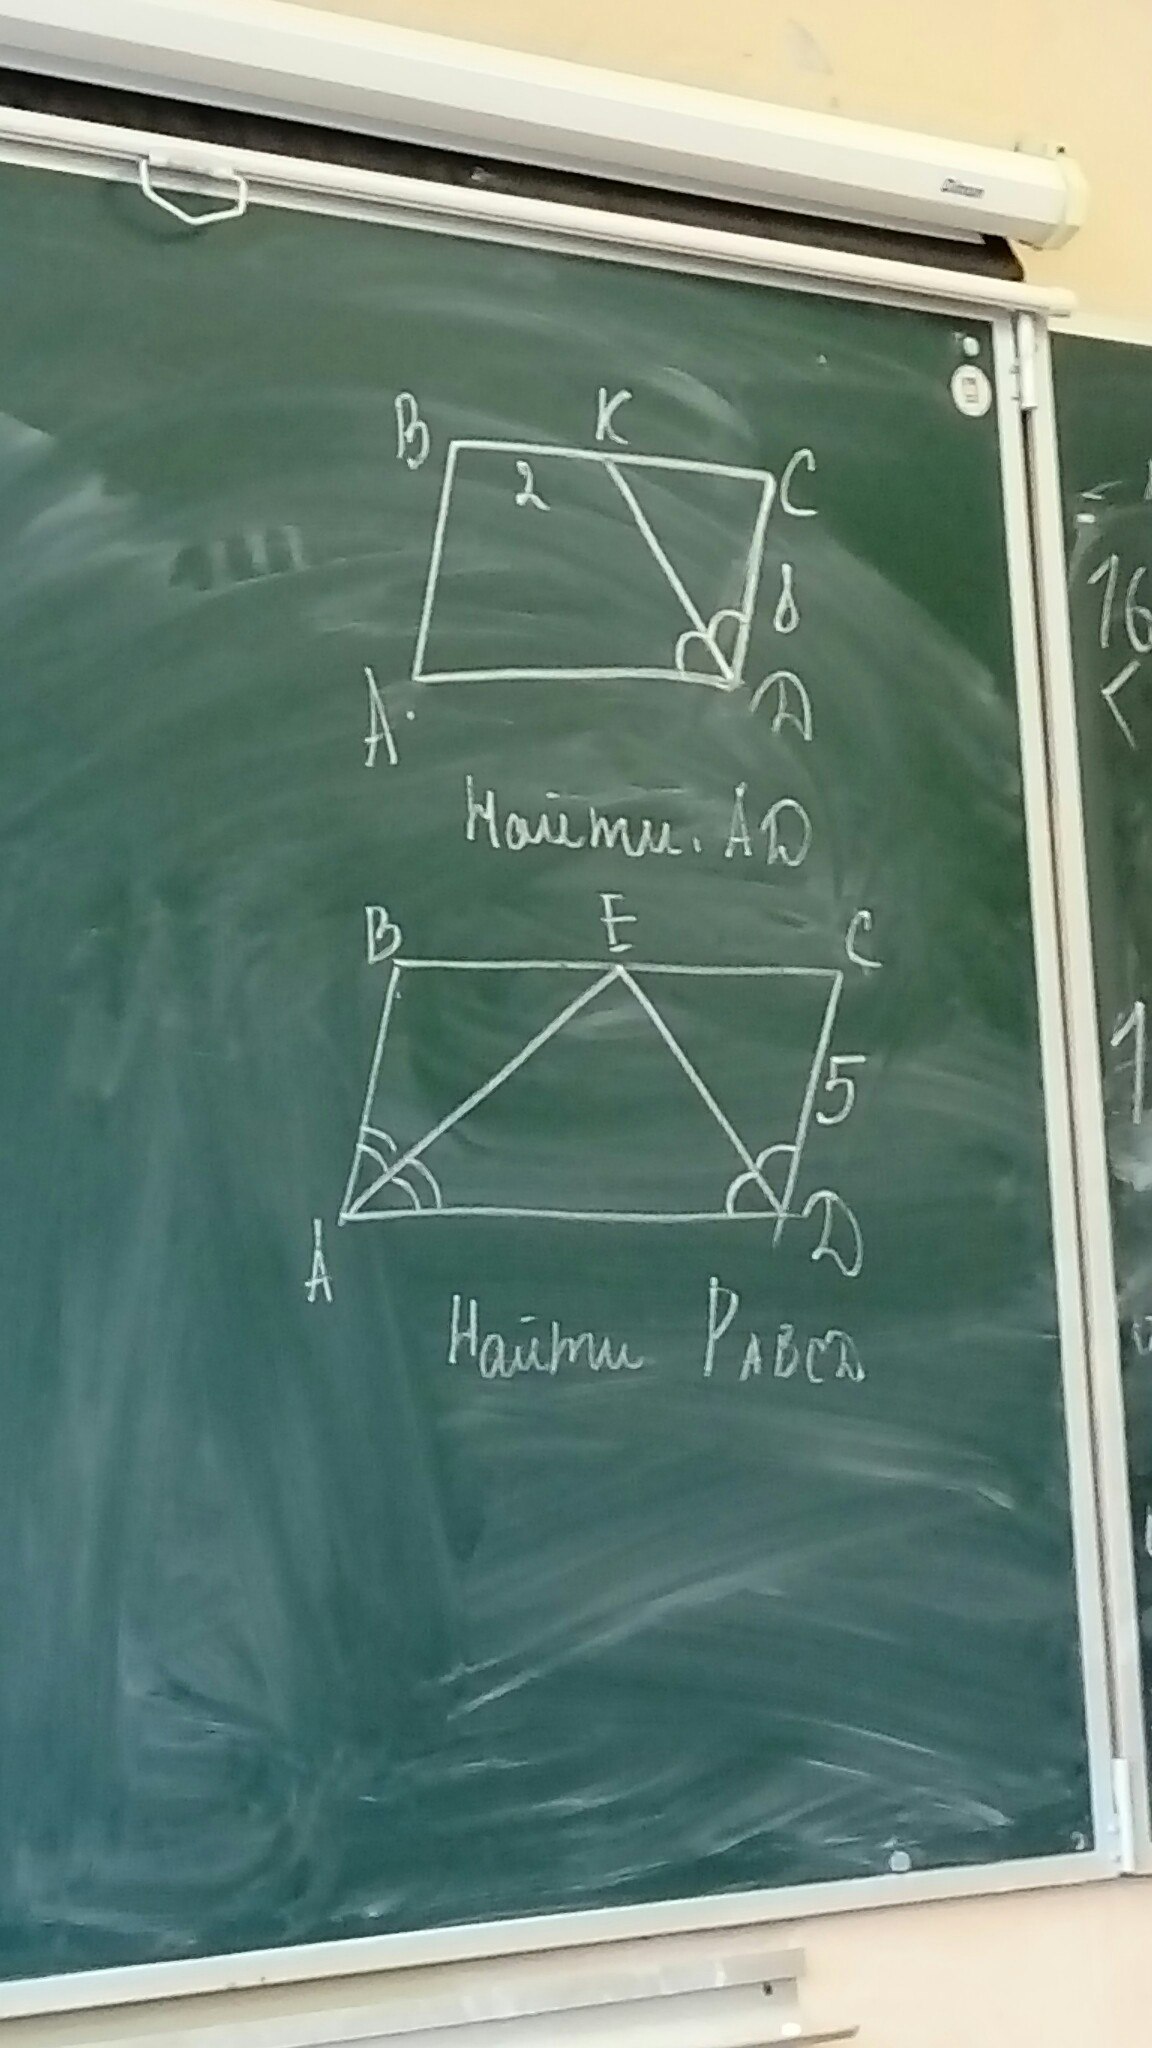 B K C
2
8
A D
Найти. AD
B E C
5
A D
Найти P ABCD
16
<
1